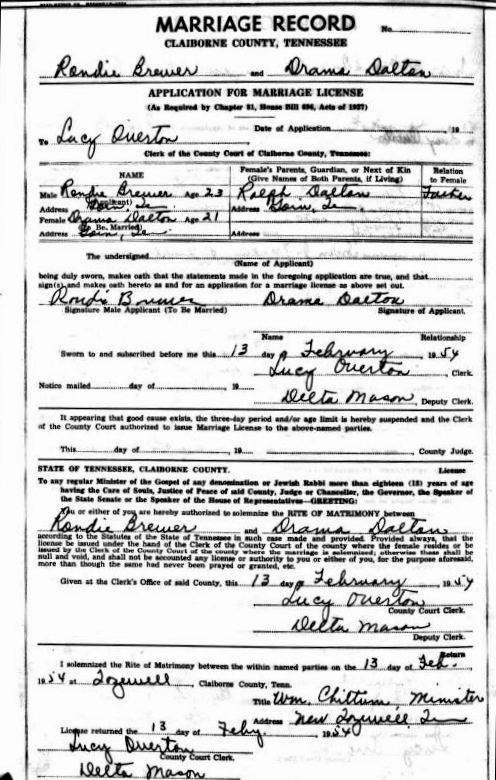 MARRIAGE RECORD
No.
CLAIBORNE COUNTY, TENNESSEE
Rondie Brewer and Drama Dalton
APPLICATION FOR MARRIAGE LICENSE
(As Required by Chapter 81, House Bill 694, Acts of 1937)
Date of Application 19
To Lucy Overton
Clerk of the County Court of Claiborne County, Tennessee:
NAME
Female's Parents, Guardian, or Next of Kin (Give Names of Both Parents, if Living)
Relation to Female
Male Rondie Brewer Age 23 Ralph Dalton Father
(Applicant)
Address Goin, Te Address Goin, Te
Female Drama Dalton Age 21
(To Be Married)
Address Goin, Te Address
The undersigned
(Name of Applicant)
being duly sworn, makes oath that the statements made in the foregoing application are true, and that
sign(s) and makes oath hereto as and for an application for a marriage license as above set out.
Rondie Brewer Drama Dalton
Signature Male Applicant (To Be Married) Signature of Applicant.
Name Relationship
Sworn to and subscribed before me this 13 day of February, 1954
Lucy Overton, Clerk.
Notice mailed day of, 19
Delta Mason, Deputy Clerk.
It appearing that good cause exists, the three-day period and/or age limit is hereby suspended and the Clerk
of the County Court authorized to issue Marriage License to the above-named parties.
This day of, 19, County Judge.
STATE OF TENNESSEE, CLAIBORNE COUNTY. License
To any regular Minister of the Gospel of any denomination or Jewish Rabbi more than eighteen (18) years of age
having the Care of Souls, Justice of Peace of said County, Judge or Chancellor, the Governor, the Speaker of
the State Senate or the Speaker of the House of Representatives—GREETING:
You or either of you are hereby authorized to solemnize the RITE OF MATRIMONY between
Rondie Brewer and Drama Dalton
according to the Statutes of the State of Tennessee in such case made and provided. Provided always, that the
license be issued under the hand of the Clerk of the County Court of the county where the female resides or be
issued by the Clerk of the County Court of the county where the marriage is solemnized; otherwise these shall be
null and void, and shall not be accounted any license or authority to you or either of you, for the purpose aforesaid,
more than though the same had never been prayed or granted, etc.
Given at the Clerk's Office of said County, this 13 day of February, 1954
Lucy Overton
County Court Clerk.
Delta Mason
Deputy Clerk.
Return
I solemnized the Rite of Matrimony between the within named parties on the 13 day of Feb.
1954 at Tazewell, Claiborne County, Tenn.
Title Wm. Chittum, Minister
Address New Tazewell Te
License returned the 13 day of Feby. 1954
Lucy Overton
County Court Clerk.
Delta Mason